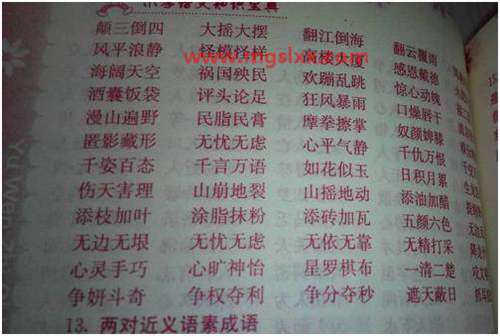 语文知识宝典
颠三倒四 大摇大摆 翻江倒海 翻云覆雨
风平浪静 怪模怪样 高楼大厦 感恩戴德
海阔天空 祸国殃民 欢蹦乱跳 惊心动魄
酒囊饭袋 评头论足 狂风暴雨 口燥唇干
漫山遍野 民脂民膏 摩拳擦掌 奴颜婢膝
匿影藏形 无忧无虑 心平气静 千仇万恨
千姿百态 千言万语 如花似玉 日积月累
伤天害理 山崩地裂 山摇地动 添油加醋
添枝加叶 涂脂抹粉 添砖加瓦 五颜六色
无边无垠 无忧无虑 无依无靠 无精打采
心灵手巧 心旷神怡 星罗棋布 一清二楚
争妍斗奇 争权夺利 争分夺秒 遮天蔽日
13. 两对近义语素成语